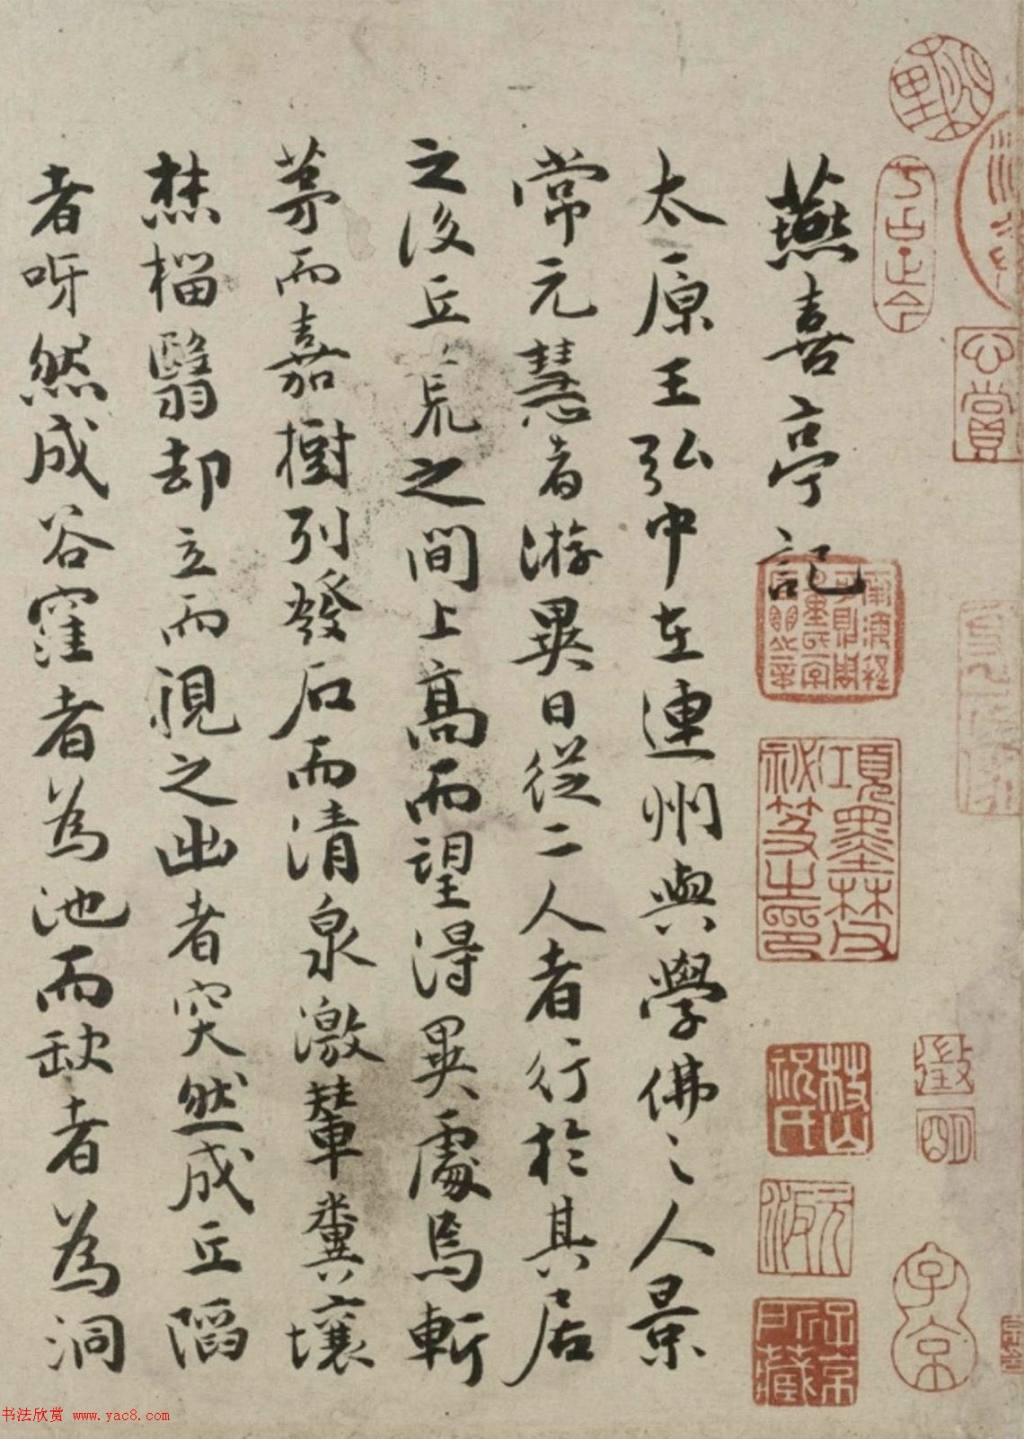 子京
徵明
項墨林父
秘笈之印
子京
所藏
燕喜亭記
太原王弘中在連州與學佛之人景
常元慧者游異日從二人者行於其居
之後丘荒之間上高而望得異處焉斬
茅而嘉樹列發石而清泉激輦糞壤
焚椔翳却立而視之出者突然成丘陷
者呀然成谷窪者為池而缺者為洞
书法欣赏 www.yac8.com